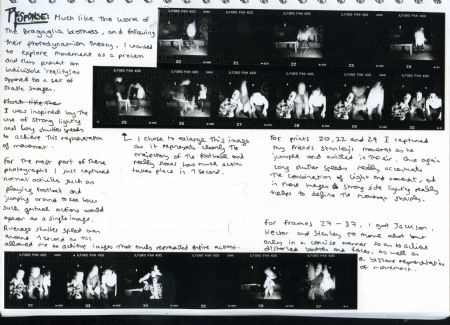 RESPONSE: Much like the work of
The Bragaglia brothers, and following
their photodynamism theory, I wanted
to explore movement as a process
and thus present an
indivisible 'reality' as
opposed to a set of
static images.
I was inspired by the
use of strong lighting
and long shutter speeds
to achieve this representation
of movement.
For the most part of these
photographs I just captured
normal activities such as
playing football and
jumping around to see how
such gestural actions would
appear as a single image.
Average shutter speed was
around 1 second as this
allowed me to achieve images that truly represented entire actions.
ILFORD PAN 400
ILFORD PAN 400
ILFORD PAN 400
20
21
22
23
24
ILFORD PAN 400
ILFORD PAN 400
ILFORD PAN 400
I chose to enlarge this image
as it represents clearly the
trajectory of the football and
really shows how much action
takes place in 1 second.
For prints 20, 22 and 24 I captured
my friend Stanley's movement as he
jumped and twirled in the air. Once again
long shutter speeds really accentuate
the combination of light and movement, and
in these images strong side lighting really
helps to define the human shape.
For frames 27 - 37, I got Jackson,
Hector and Stanley to move about but
only in a concise manner to achieve
distorted bodies and faces, as well as
a bizarre representation
of movement.
ILFORD PAN 400
ILFORD PAN 400
ILFORD PAN 400
32
33
34
35
36
37